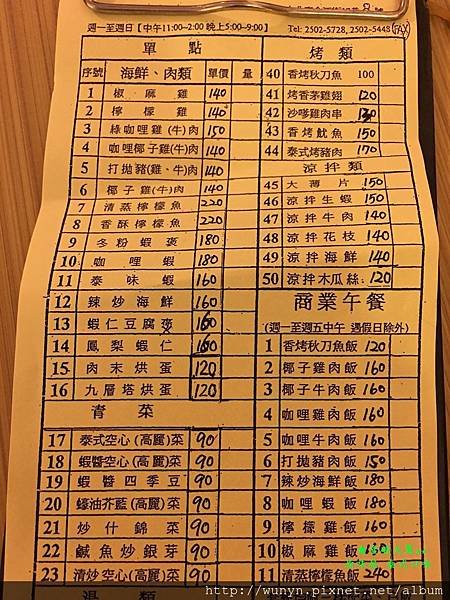 週一至週日【中午11:00~2:00 晚上5:00~9:00】
Tel: 2502-5728, 2502-5448 (FAX)
單點
序號 海鮮、肉類 單價 量
1 椒麻雞 140
2 檸檬雞 140
3 綠咖哩雞(牛)肉 150
4 咖哩椰子雞(牛)肉 140
5 打拋豬(雞、牛)肉 140
6 椰子雞(牛)肉 140
7 清蒸檸檬魚 220
8 香酥檸檬魚 220
9 冬粉蝦煲 180
10 咖哩蝦 180
11 泰味蝦 160
12 辣炒海鮮 160
13 蝦仁豆腐煲 160
14 鳳梨蝦仁 160
15 肉末烘蛋 120
16 九層塔烘蛋 120
青菜
17 泰式空心(高麗)菜 90
18 蝦醬空心(高麗)菜 90
19 蝦醬四季豆 90
20 蠔油芥藍(高麗)菜 90
21 炒什錦菜 90
22 鹹魚炒銀芽 90
23 清炒空心(高麗)菜 90
湯類
烤類
40 香烤秋刀魚 100
41 烤香茅雞翅 120
42 沙嗲雞肉串 130
43 香烤魷魚 150
44 泰式烤豬肉 170
涼拌類
45 大薄片 150
46 涼拌生蝦 150
47 涼拌牛肉 140
48 涼拌花枝 140
49 涼拌海鮮 140
50 涼拌木瓜絲 120
商業午餐
(週一至週五中午 遇假日除外)
1 香烤秋刀魚飯 120
2 椰子雞肉飯 160
3 椰子牛肉飯 160
4 咖哩雞肉飯 160
5 咖哩牛肉飯 160
6 打拋豬肉飯 150
7 辣炒海鮮飯 180
8 咖哩蝦飯 180
9 檸檬雞飯 160
10 椒麻雞飯
11 清蒸檸檬魚飯 240
http://wunyn.pixnet.net/blog